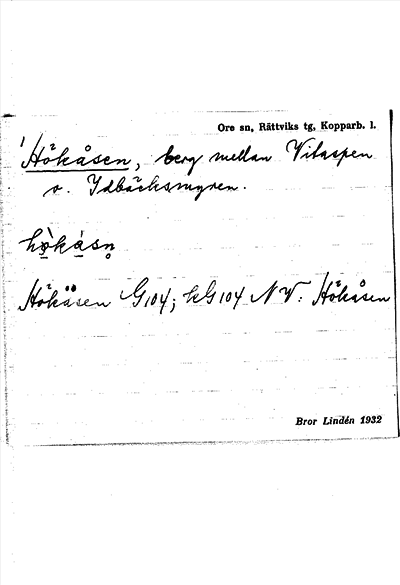 Ore sn, Rättviks tg, Kopparb. l.
Hökåsen, berg mellan Vitaspen
o. Idbäcksmyren.
Hökåsen G104; kG104 NV: Hökåsen
Bror Lindén 1932